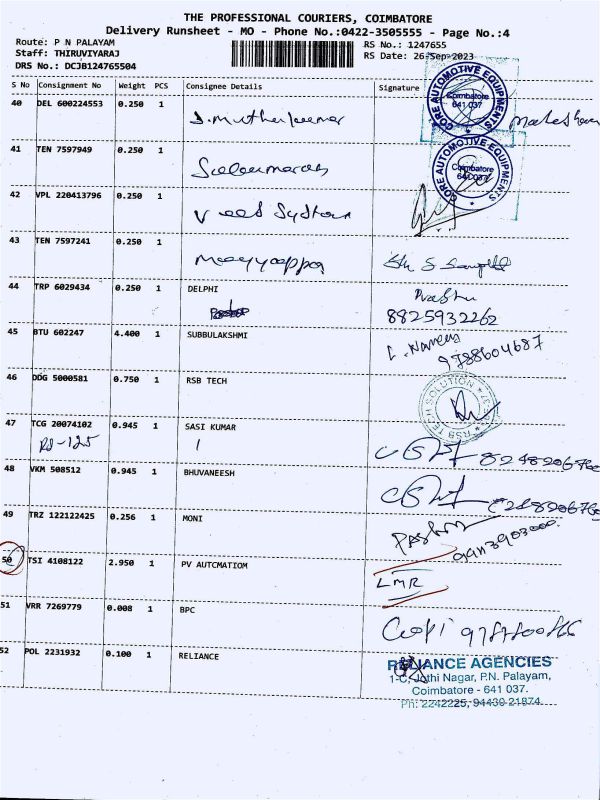 THE PROFESSIONAL COURIERS, COIMBATORE
Delivery Runsheet - MO - Phone No.:0422-3505555 - Page No.:4
Route: P N PALAYAM
Staff: THIRUVIYARAJ
DRS No.: DCJB124765504
RS No.: 1247655
RS Date: 26-Sep-2023
S No Consignment No Weight PCS Consignee Details Signature
40 DEL 600224553 0.250 1 S.muthukumar
CORE AUTOMOTIVE EQUIPMENTS
Coimbatore
641 037
41 TEN 7597949 0.250 1
CORE AUTOMOTIVE EQUIPMENTS
Coimbatore
641 037
42 VPL 220413796 0.250 1
43 TEN 7597241 0.250 1 Meyyappa
44 TRP 6029434 0.250 1 DELPHI Prabhu
8825932262
45 BTU 602247 4.400 1 SUBBULAKSHMI
9788604687
46 DDG 5000581 0.750 1 RSB TECH
RSB TECH SOLUTION
47 TCG 20074102 0.945 1 SASI KUMAR
RS-125
48 VKM 508512 0.945 1 BHUVANEESH
49 TRZ 122122425 0.256 1 MONI
50 TSI 4108122 2.950 1 PV AUTCMATIOM
LMR
51 VRR 7269779 0.008 1 BPC
Gopi
52 POL 2231932 0.100 1 RELIANCE
RELIANCE AGENCIES
1-C, Jothi Nagar, P.N. Palayam,
Coimbatore - 641 037.
Ph: 2242225, 94430 21874